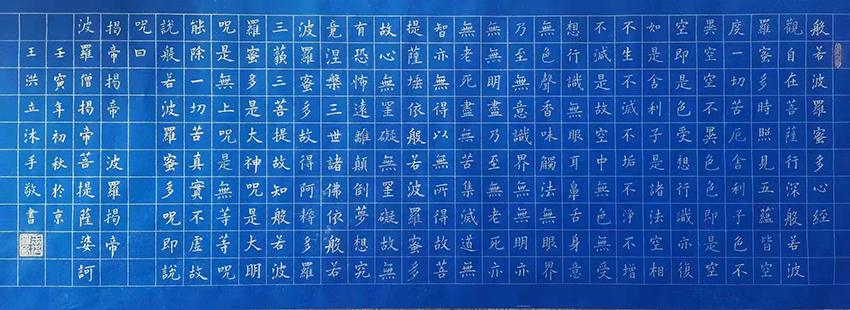 般若波羅蜜多心經
觀自在菩薩行深般若波
羅蜜多時照見五蘊皆空
度一切苦厄舍利子色不
異空空不異色色即是空
空即是色受想行識亦復
如是舍利子是諸法空相
不生不滅不垢不淨不增
不減是故空中無色無受
想行識無眼耳鼻舌身意
無色聲香味觸法無眼界
乃至無意識界無無明亦
無無明盡乃至無老死亦
無老死盡無苦集滅道無
智亦無得以無所得故菩
提薩埵依般若波羅蜜多
故心無罣礙無罣礙故無
有恐怖遠離顛倒夢想究
竟涅槃三世諸佛依般若
波羅蜜多故得阿耨多羅
三藐三菩提故知般若波
羅蜜多是大神呪是大明
呪是無上呪是無等等呪
能除一切苦真實不虛故
說般若波羅蜜多呪即說
呪曰
揭帝揭帝 波羅揭帝
波羅僧揭帝菩提薩婆訶
壬寅年初秋於京
王洪立沐手敬書